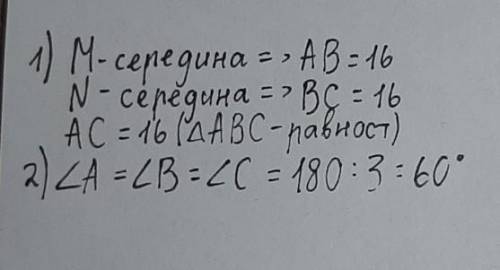 1) М-середина => AB = 16
N - середина => BC = 16
AC = 16 (△ABC - равност)
2) ∠A = ∠B = ∠C = 180 : 3 = 60°